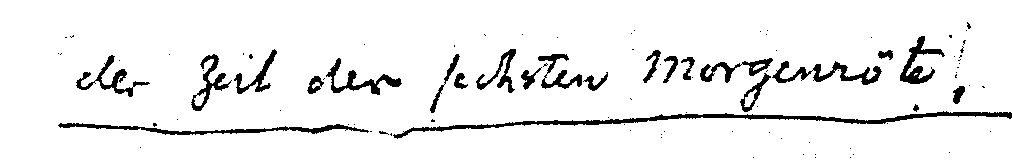 der Zeit der sechsten Morgenröte!